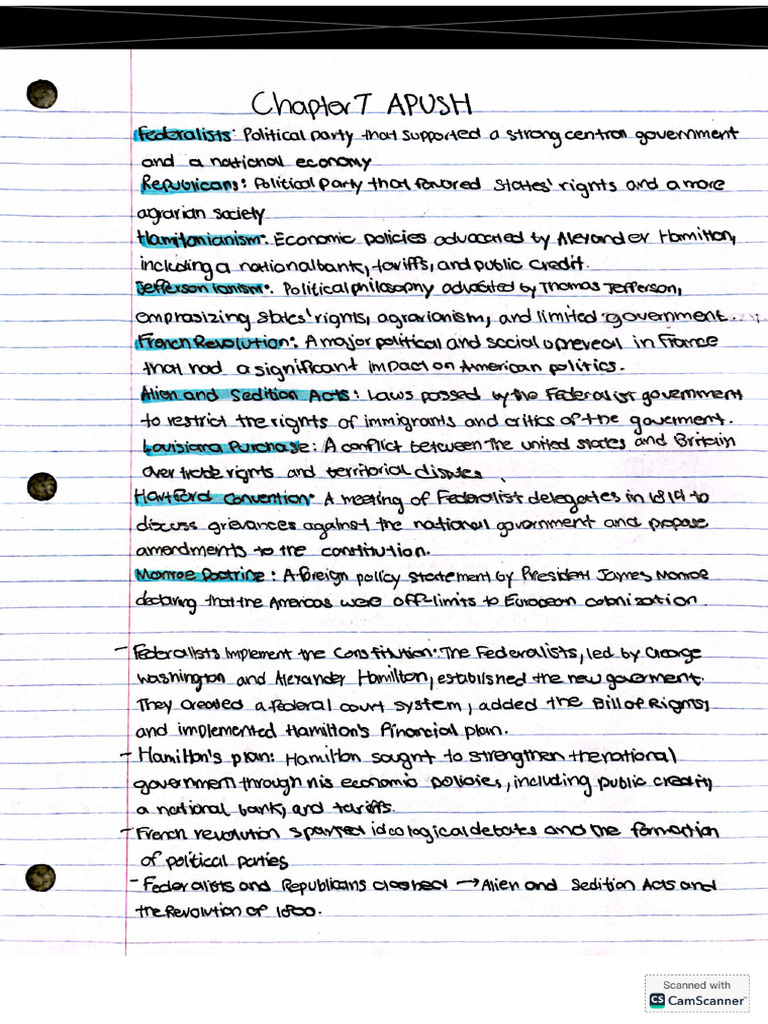 Chapter 7 APUSH
Federalists: Political party that supported a strong central government
and a national economy
Republicans: Political Party that favored States' rights and a more
agrarian society
Hamiltonianism: Economic policies advocated by Alexander Hamilton,
including a national bank, tariffs, and public credit.
Jeffersonianism: Political philosophy advocated by Thomas Jefferson,
emphasizing states' rights, agrarianism, and limited government.
French Revolution: A major political and social upreveal in France
that had a significant impact on American politics.
Alien and Sedition Acts: Laws passed by the Federalist government
to restrict the rights of immigrants and critics of the goverment.
Louisiana Purchase: A conflict between the united states and Britain
over trade rights and territorial disputes
Hartford Convention: A meeting of Federalist delegates in 1814 to
discuss grievances against the national government and propose
amendments to the constitution.
Monroe Doctrine: A foreign policy statement by President James Monroe
declaring that the Americas were off-limits to European colonization.
- Federalists Implement the Constitution: The Federalists, led by George
Washington and Alexander Hamilton, established the new goverment.
They created a federal court system, added the Bill of Rights,
and implemented Hamilton's Financial plan.
- Hamilton's plan: Hamilton sought to strengthen the national
government through his economic policies, including public credit,
a national bank, and tariffs.
- French revolution sparked ideological debates and the formation
of political parties
- Federalists and Republicans clashed → Alien and Sedition Acts and
the Revolution of 1800.
Scanned with
CS CamScanner